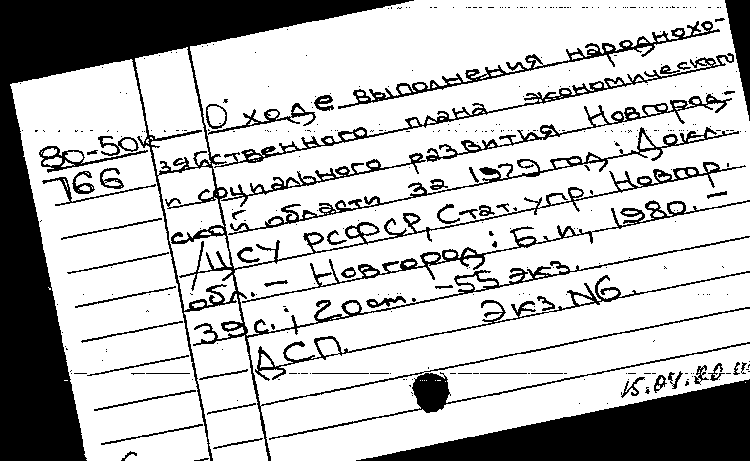 О ходе выполнения народнохо-
80-50к зяйственного плана экономического
766 и социального развития Новгород-
ской области за 1979 год: Докл.
/ЦСУ РСФСР, Стат. упр. Новгор.
обл. – Новгород: Б.и., 1980. –
39 с.; 20 см. – 55 экз.
ДСП. Экз. N6.
15.04.80